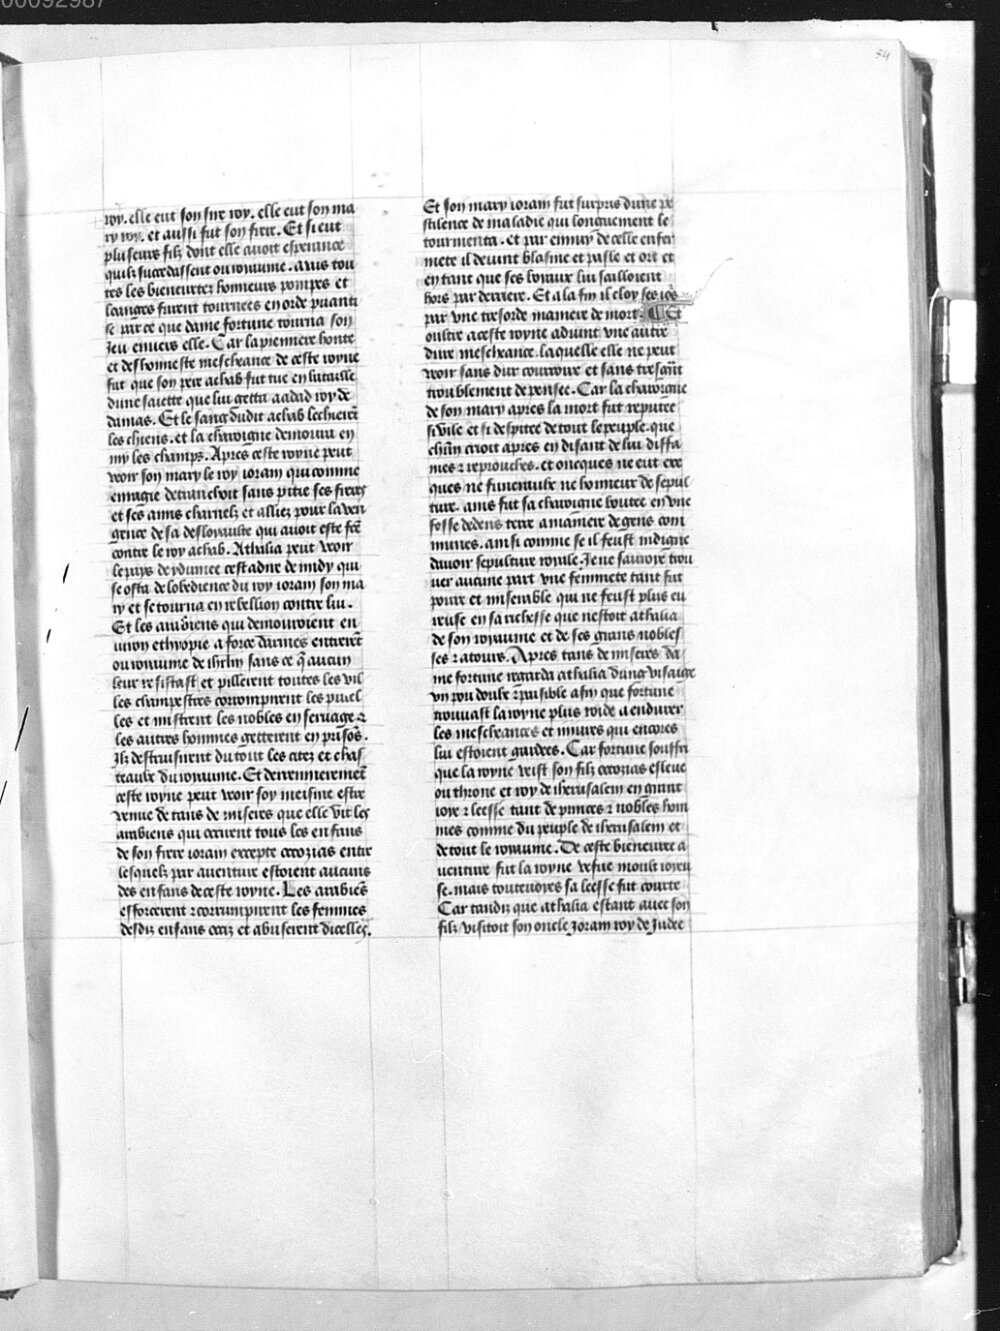 00092987
54
roy. elle eut son sire roy. elle eut son ma
ry roy. et aussi fut son frere. Et si eut
pluseurs filz dont elle auoit esperance
quilz succedassent ou royaume. mais tou
tes les bieneurtez honneurs pompes et
loanges furent tournees en orde puanti
se par ce que dame fortune tourna son
jeu enuers elle. Car la pienniere honte
et deshonneste mescheance de ceste royne
fut que son pere achab fut tue en bataille
dune saiette que lui getta aadad roy de
damas. Et le sang dudit achab lecherēt
les chiens. et la charoigne demoura en
my les champs. Apres ceste royne peut
veoir son mary le roy ioram qui comme
enragie detranchoit sans pitie ses freres
et ses amis charnelz et alliez pour la ven
gence de sa desloyaulte qui auoit este fcē
contre le roy achab. Athalia peut veoir
le pays de ydumee cest adire de midy qui
se osta de lobedience du roy ioram son ma
ry et se tourna en rebellion contre lui.
Et les arabiens qui demouroient en
uiron ethyopie a force darmes entrerēt
ou royaume de ihrlm sans ce q̄ aucun
leur resistast et pillerent toutes les vil
les champestres corrompirent les pucel
les et mistrent les nobles en seruage ⁊
les autres hommes getterent en prisōs.
Ilz destruisirent du tout les citez et chas
teaulx du royaume. Et derrenieremēt
ceste royne peut veoir soy meisme estre
venue de tans de miseres que elle vit les
arabiens qui occirent tous les enfans
de son frere ioram excepte ocozias entre
lesquelz par auenture estoient aucuns
des enfans de ceste royne. Les arabiēs
efforcerent ⁊ corrumpirent les femmes
desdiz enfans occiz et abuserent dicelles.
Et son mary ioram fut surpris dune pe
stilence de maladie qui longuement le
tourmenta. et par ennuy de celle enfer
mete il deuint blasme et pasle et ort et
en tant que ses boyaux lui sailloient
hors par derriere. Et a la fin il cloy ses iōs
par vne tresorde maniere de mort. ¶ Et
oultre a ceste royne aduint vne autre
dure mescheance. laquelle elle ne peut
veoir sans dur courroux et sans tresgāt
troublement de pensee. Car la charoigne
de son mary apres la mort fut reputee
si vile et si despitee de tout le peuple. que
chūn crioit apres en disant de lui diffa
mes ⁊ reprouches. et oncques ne eut exe
ques ne funerailx ne honneur de sepul
ture. ains fut sa charoigne boutee en vne
fosse dedens terre a maniere de gens com
munes. ainsi comme se il feust indigne
dauoir sepulture royale. Je ne sauroie trou
uer aucune part vne femmete tant fut
poure et miserable qui ne feust plus eu
reuse en sa richesse que nestoit athalia
de son royaume et de ses grans nobles
ses ⁊ atours. Apres tans de miseres da
me fortune regarda athalia dung visaige
vn pou doulx ⁊ paisible afin que fortune
trouuast la royne plus roide a endurer
les mescheances et iniures qui encores
lui estoient gardees. Car fortune souffri
que la royne veist son filz ocozias esleue
ou throne et roy de iherusalem en grant
ioye ⁊ leesse tant de princes ⁊ nobles hom
mes comme du peuple de iherusalem et
de tout le royaume. De ceste bieneuree a
uenture fut la royne vefue moult ioyeu
se. mais toutesuoyes sa leesse fut courte
Car tandiz que athalia estant auec son
filz visitoit son oncle Joram roy de Judee